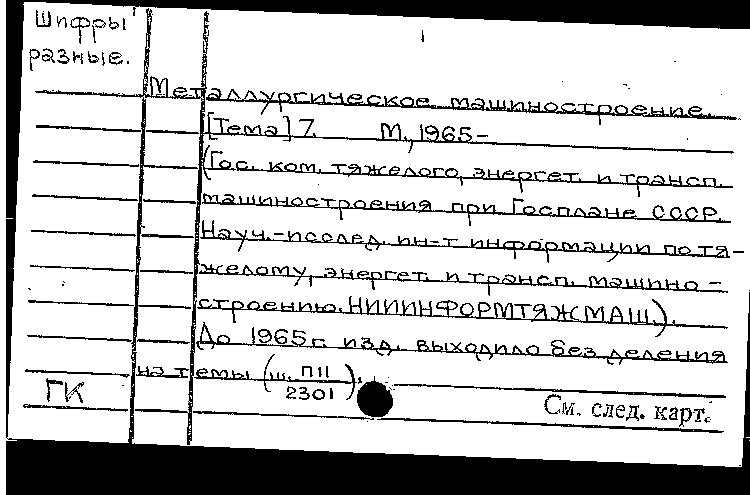 Шифры
разные.
Металлургическое машиностроение.
[Тема] 7. М., 1965-
(Гос. ком. тяжелого, энергет. и трансп.
машиностроения при Госплане СССР.
Науч.-исслед. ин-т информации по тя-
желому, энергет. и трансп. машино-
строению. НИИИНФОРМТЯЖМАШ.).
До 1965 г. изд. выходило без деления
на темы (ш. П11/2301).
ГК
См. след. карт.